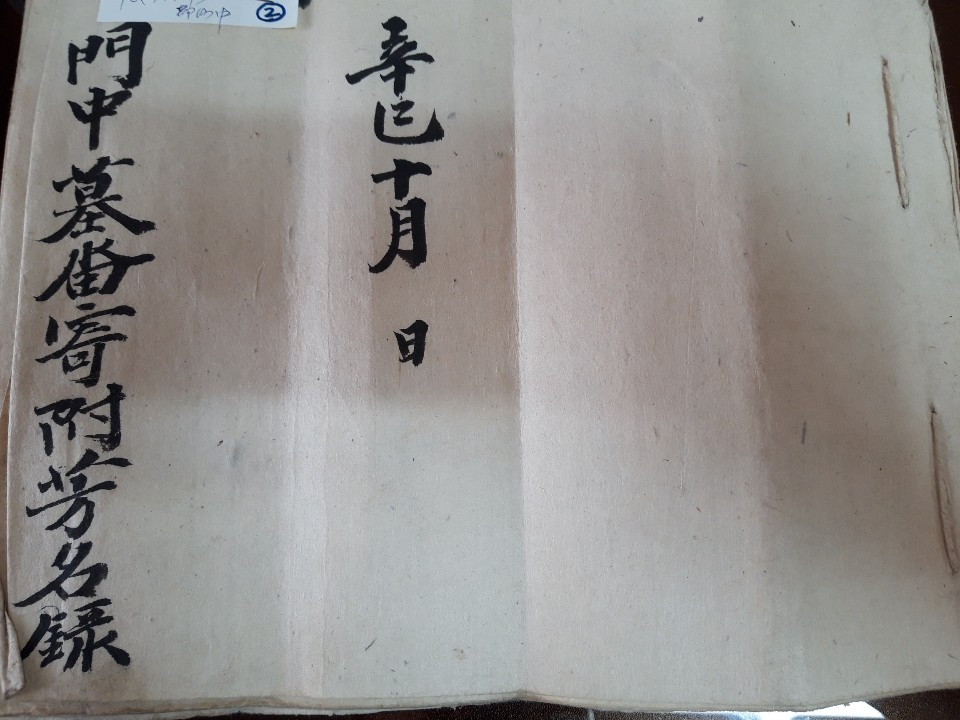 辛巳十月 日
門中墓畓寄附芳名錄
②